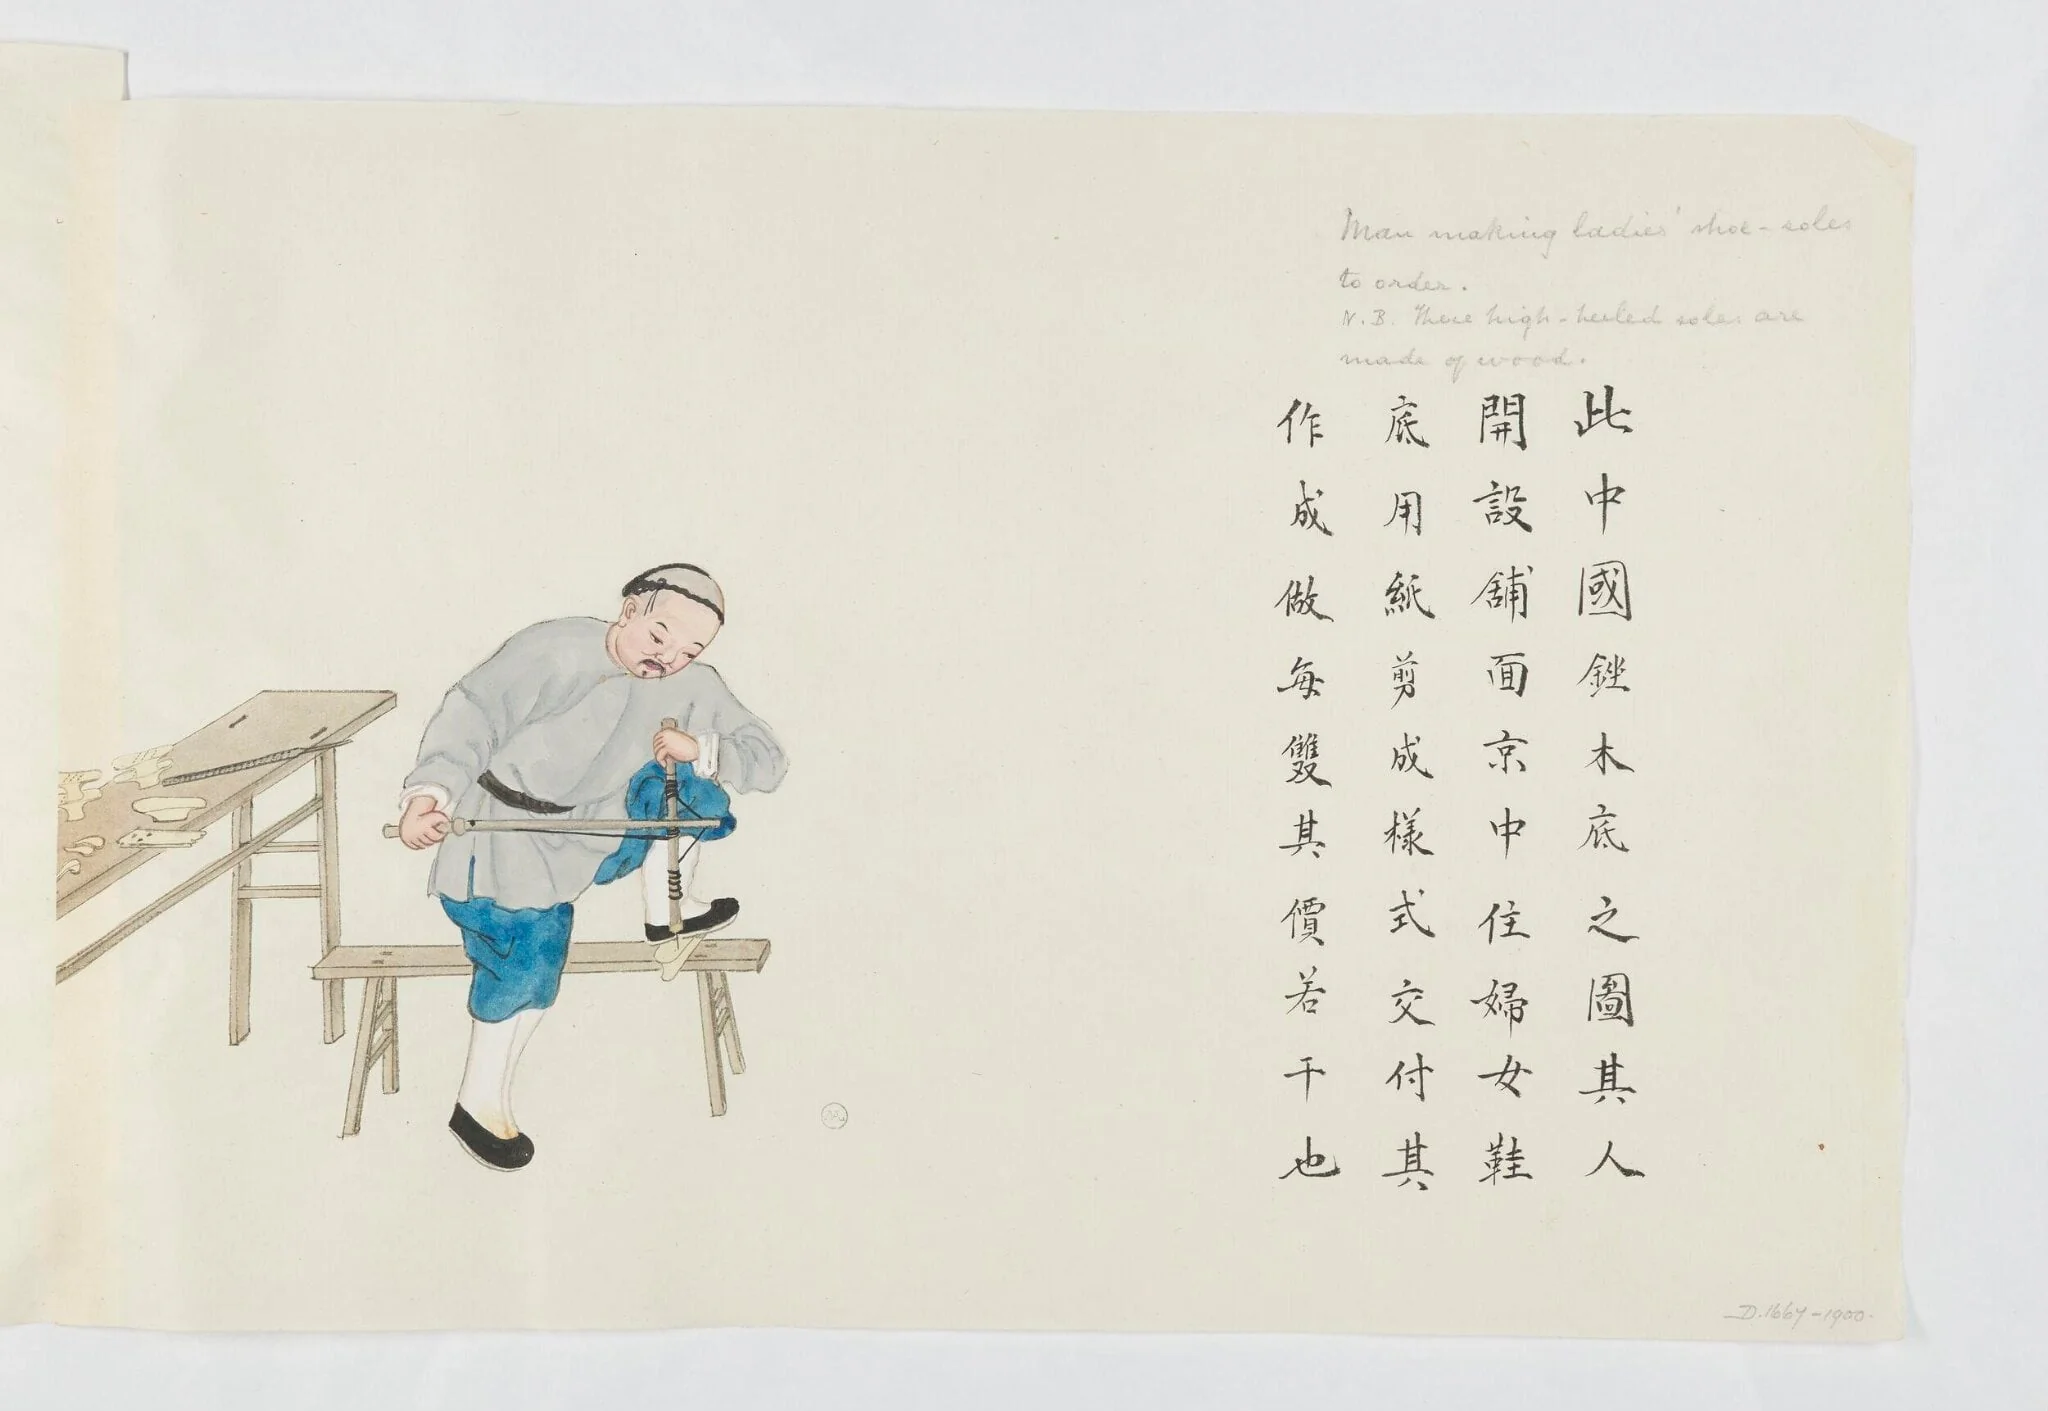 Man making ladies' shoe-soles
to order.
N.B. These high-heeled soles are
made of wood.
此中國銼木底之圖其人
開設舖面京中住婦女鞋
底用紙剪成樣式交付其
作成做每雙其價若干也
D.1667-1900.